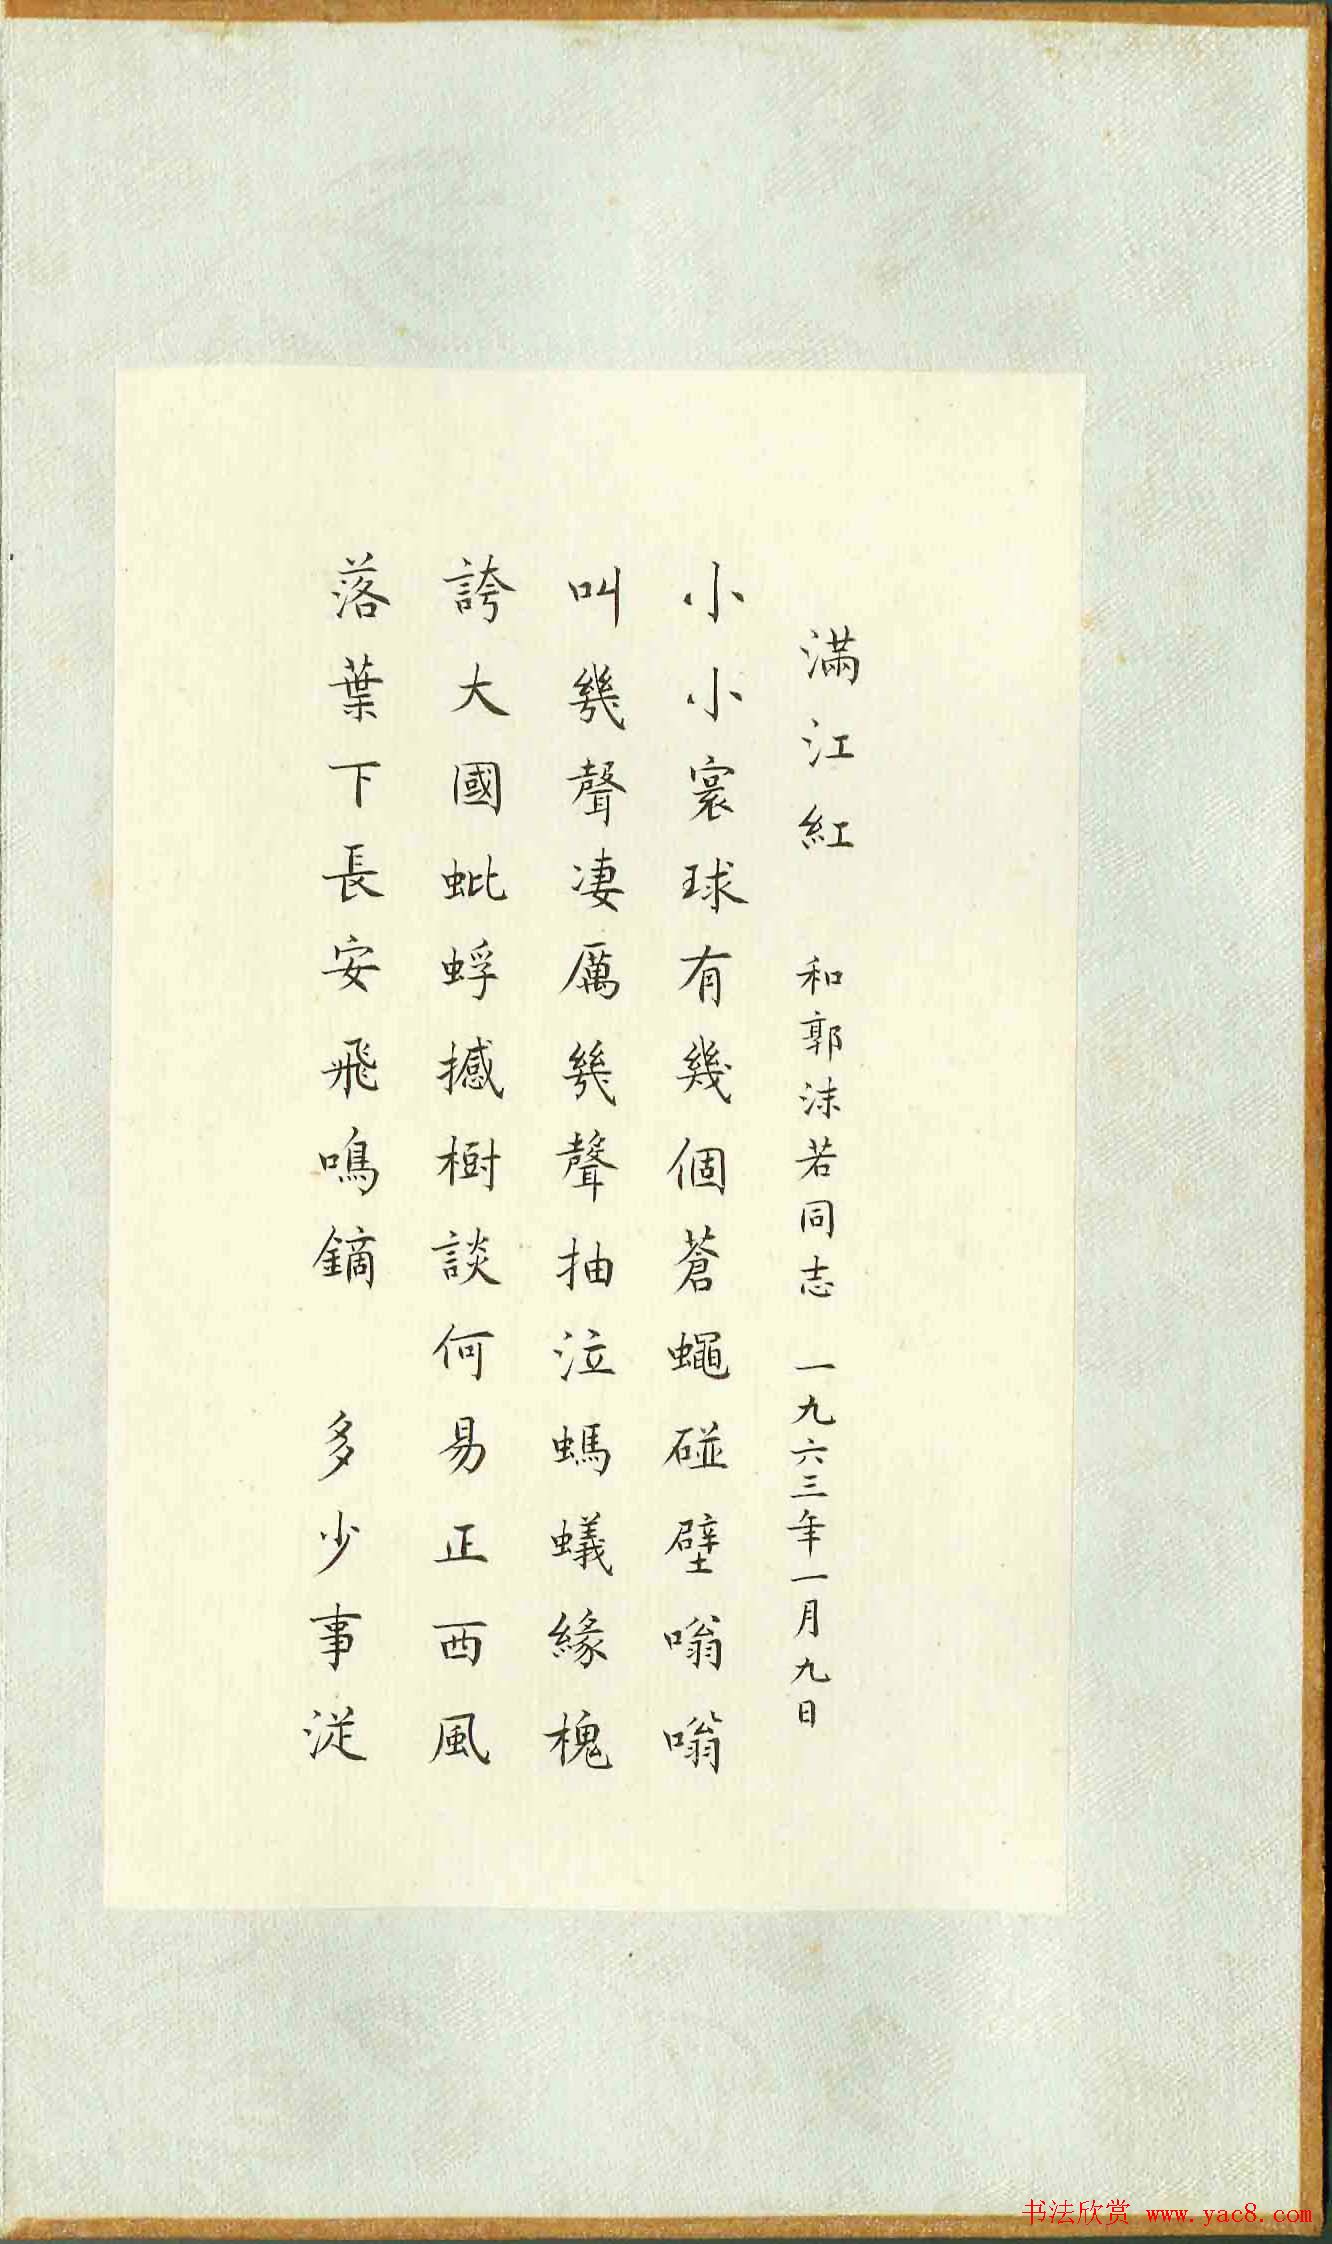 滿江紅 和郭沫若同志 一九六三年一月九日
小小寰球有幾個蒼蠅碰壁嗡嗡
叫幾聲凄厲幾聲抽泣螞蟻緣槐
誇大國蚍蜉撼樹談何易正西風
落葉下長安飛鳴鏑 多少事從
书法欣赏 www.yac8.com